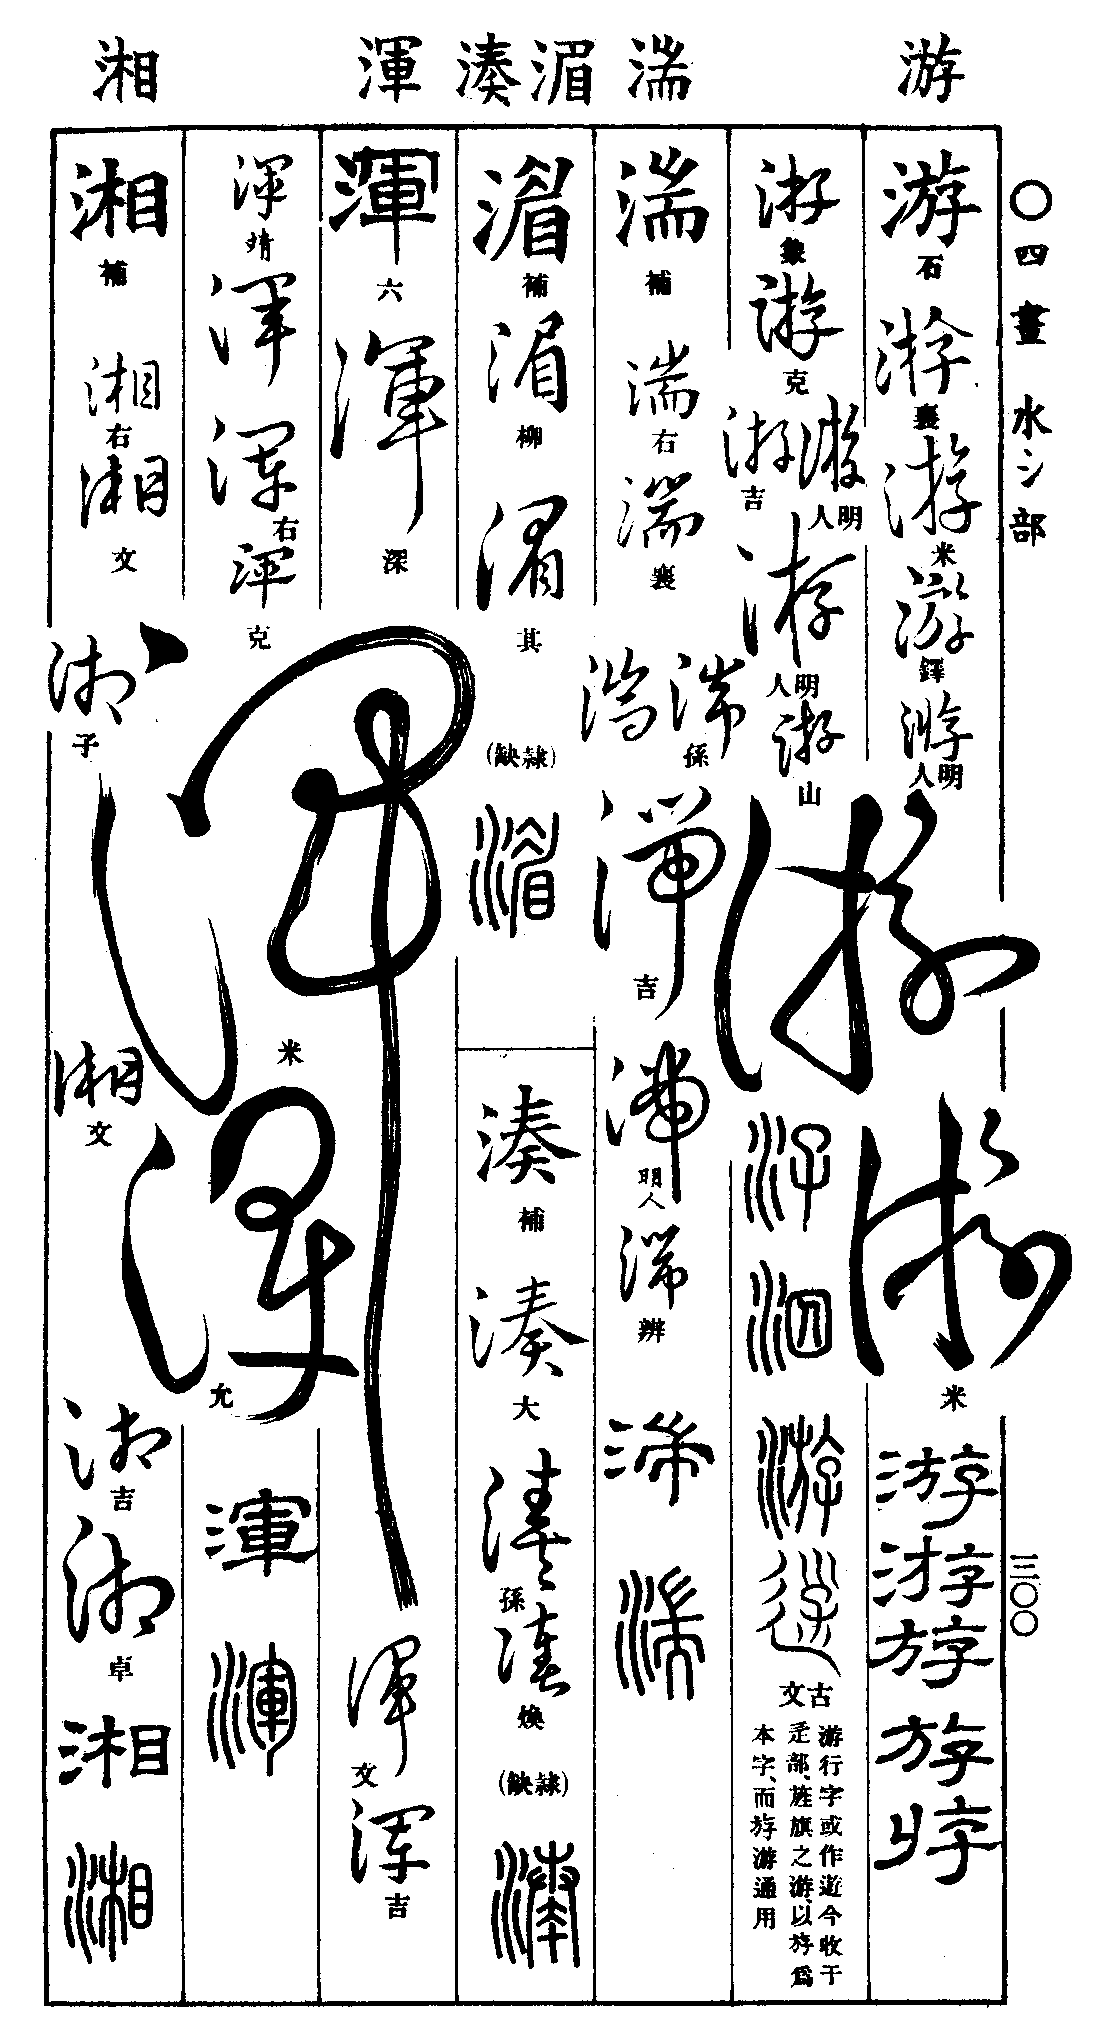 游
湍
湄
湊
渾
湘
〇四畫 水氵部
三〇〇
游
石
游
襄
游
米
游
鐸
游
明人
游
米
游
游
游
游
游
游
象
游
克
游
明人
游
吉
游
明人
游
山
游
汓
泅
游
古文
游行字或作遊今收于
辵部、旌旗之游、以㫍爲
本字、而㫍游通用
湍
補
湍
右
湍
襄
湍
湍
孫
湍
吉
湍
明人
湍
辨
湍
湍
湄
補
湄
柳
湄
其
(隸缺)
湄
湊
補
湊
大
湊
孫
湊
煥
(隸缺)
湊
渾
六
渾
深
渾
米
渾
文
渾
吉
渾
靖
渾
渾
右
渾
克
渾
允
渾
渾
湘
補
湘
右
湘
文
湘
子
湘
文
湘
吉
湘
卓
湘
湘